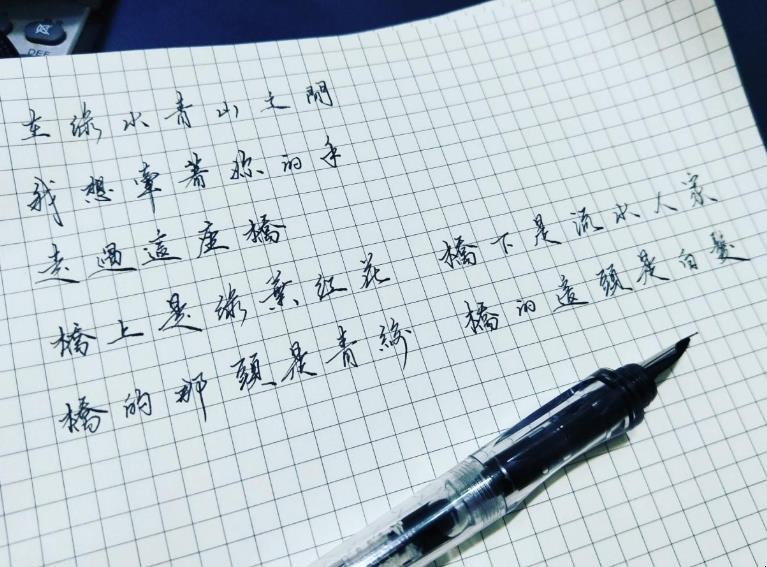 DEF
在綠水青山之間
我想牽著你的手
走過這座橋
橋上是綠葉紅花 橋下是流水人家
橋的那頭是青絲 橋的這頭是白髮